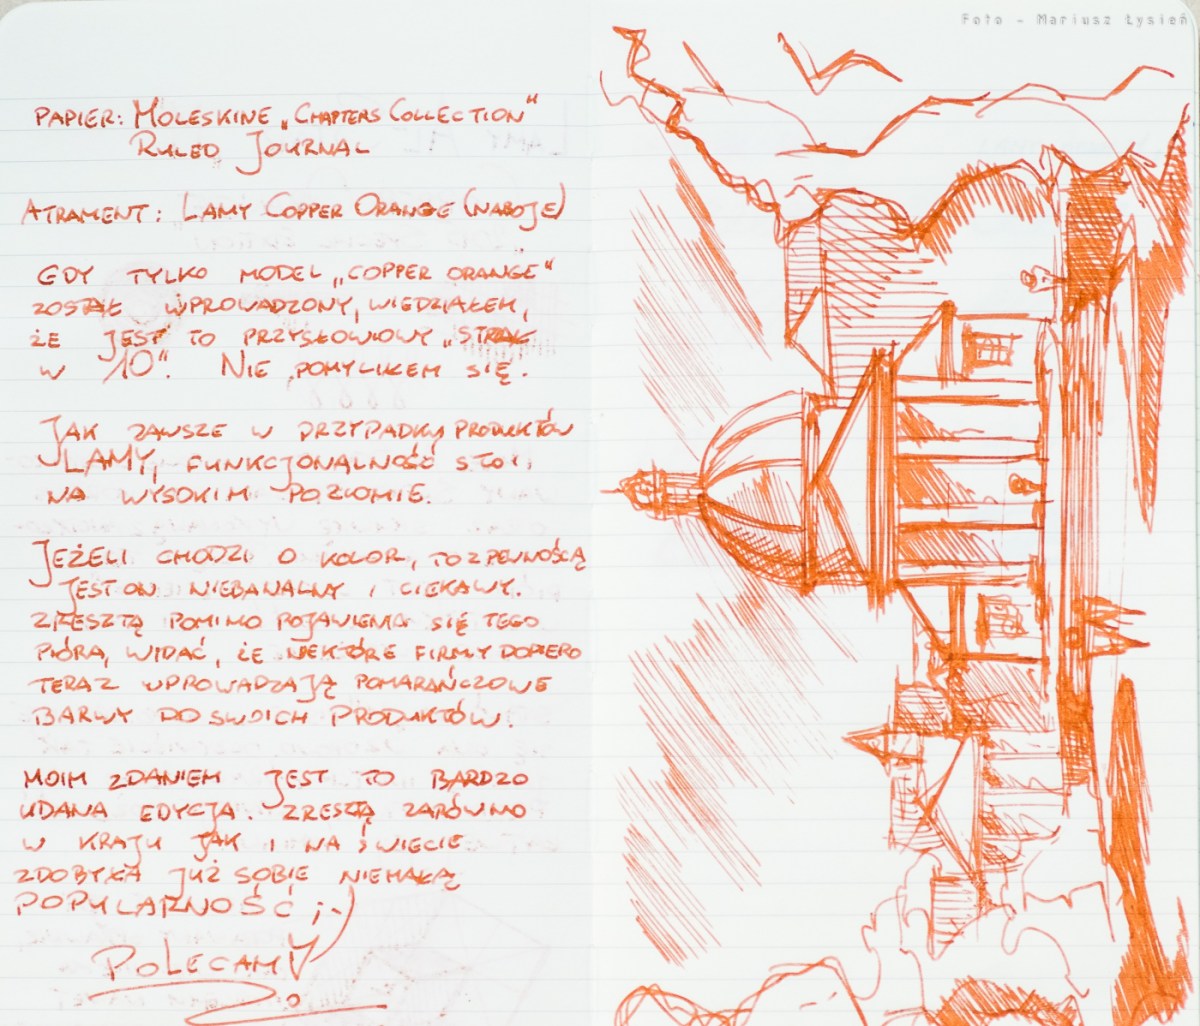 Foto - Mariusz Łysień
PAPIER: MOLESKINE „CHAPTERS COLLECTION"
RULED JOURNAL
ATRAMENT: LAMY COPPER ORANGE (NABOJE)
GDY TYLKO MODEL „COPPER ORANGE"
ZOSTAŁ WPROWADZONY, WIEDZIAŁEM,
ŻE JEST TO PRZYSŁOWIOWY „STRZAŁ
W 10". NIE POMYLIŁEM SIĘ.
JAK ZAWSZE W PRZYPADKU PRODUKTÓW
LAMY, FUNKCJONALNOŚĆ STOI
NA WYSOKIM POZIOMIE.
JEŻELI CHODZI O KOLOR, TO Z PEWNOŚCIĄ
JEST ON NIEBANALNY I CIEKAWY.
ZRESZTĄ POMIMO POJAWIENIA SIĘ TEGO
PIÓRA, WIDAĆ, ŻE NIEKTÓRE FIRMY DOPIERO
TERAZ WPROWADZAJĄ POMARAŃCZOWE
BARWY DO SWOICH PRODUKTÓW.
MOIM ZDANIEM JEST TO BARDZO
UDANA EDYCJA. ZRESZTĄ ZARÓWNO
W KRAJU JAK I NA ŚWIECIE
ZDOBYŁA JUŻ SOBIE NIEMAŁĄ
POPULARNOŚĆ ;-)
POLECAMY